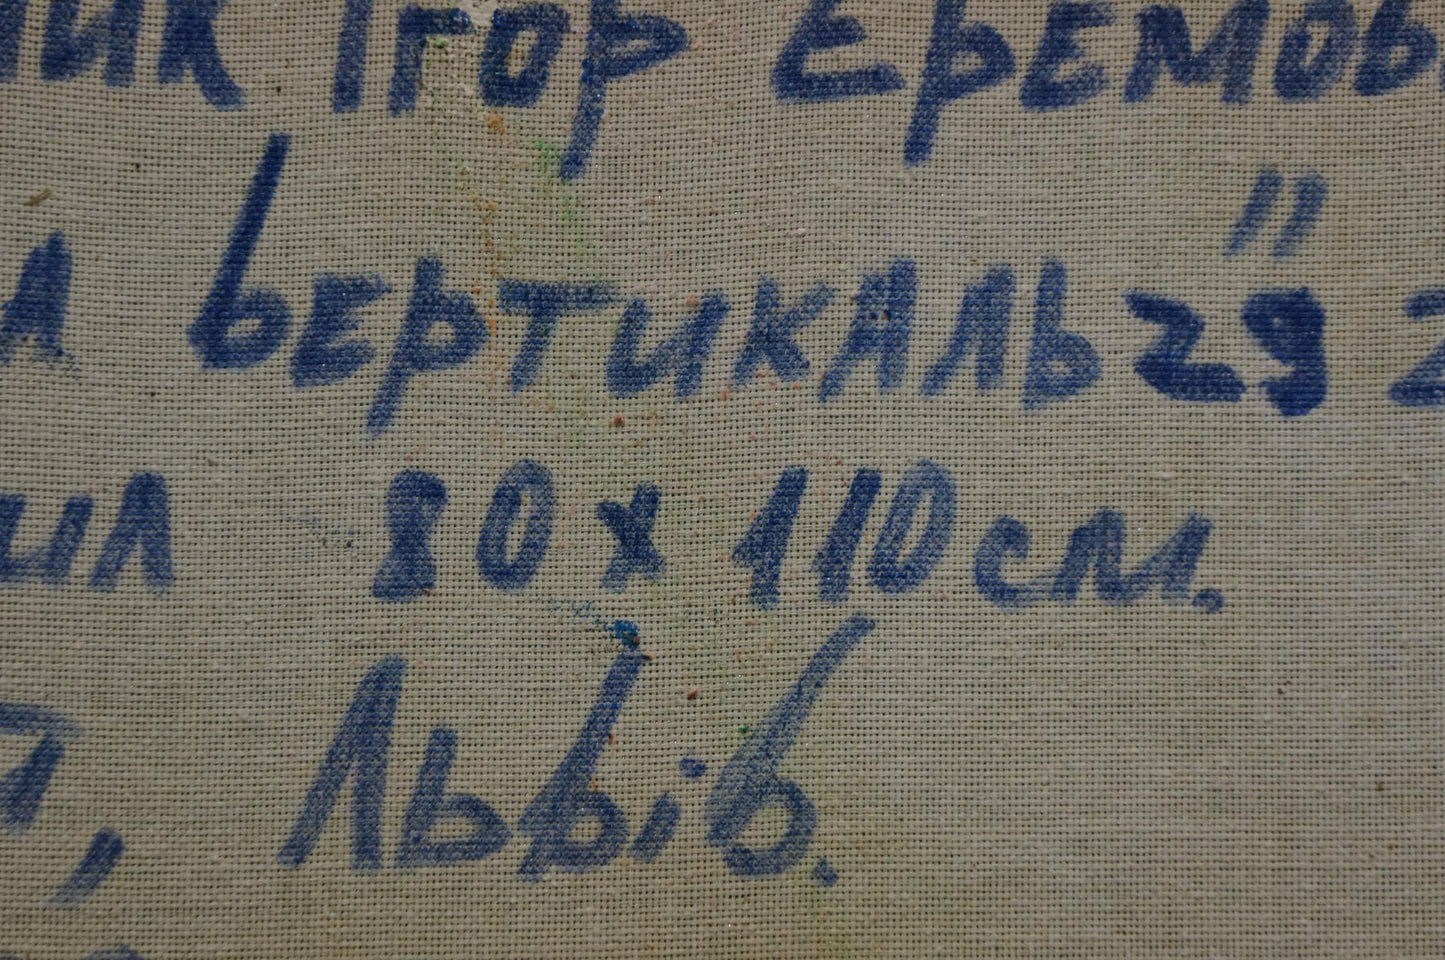 ник Ігор Єремов
л вертикаль 29" 2
ил 80 х 110 см.
т, Львів.